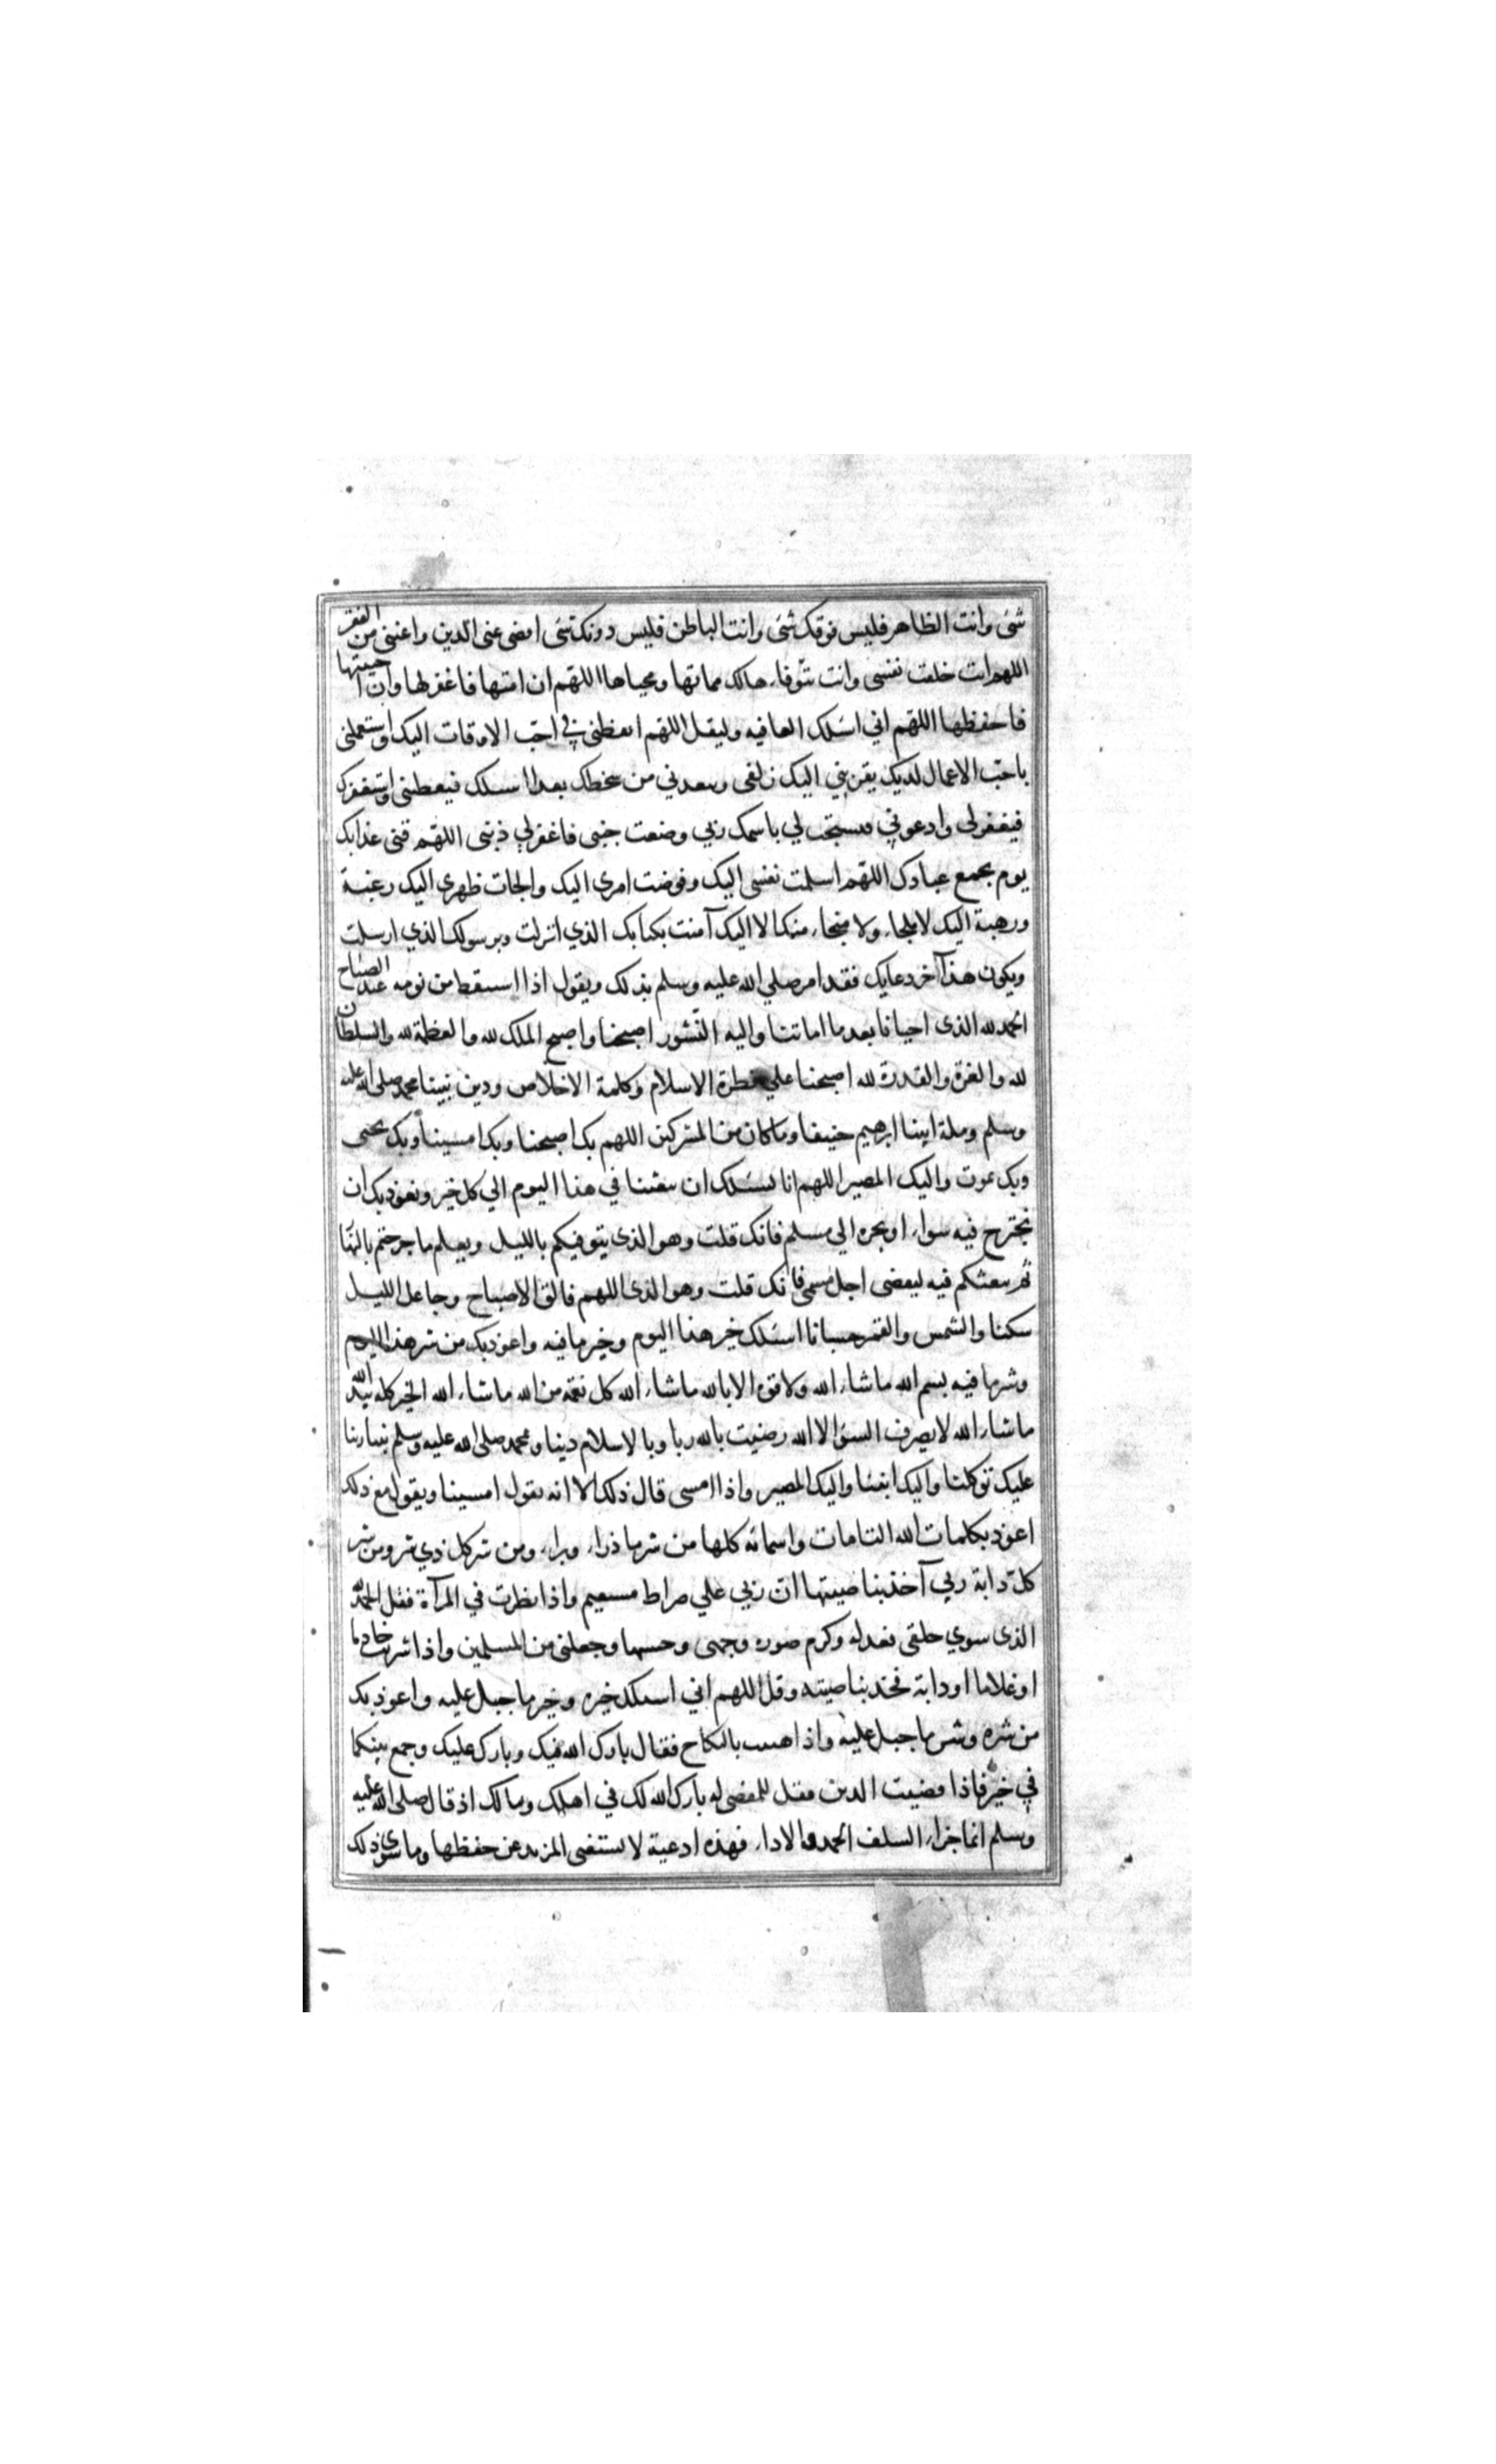 شئ وانت الظاهر فليس فوقك شئ وانت الباطن فليس دونك شئ اقض عنى الدين واغننى من الفقر
اللهم انت خلقت نفسى وانت تتوفاء هالك مماتها ومحياها اللهم ان امتها فاغفر لها وان احييتها
فاحفظها اللهم اني اسئلك العافيه وليقل اللهم ايقظنى في احب الاوقات اليك واستعملنى
باحب الاعمال لديك يقربني اليك زلفى ويبعدني من سخطك بعدا اسئلك فيعطنى واستغفرك
فيغفر لى وادعوني فيستجب لي باسمك ربي وضعت جنبى فاغفر لي ذنبى اللهم قنى عذابك
يوم تجمع عبادك اللهم اسلمت نفسى اليك وفوضت امرى اليك والجات ظهرى اليك رغبة
ورهبة اليك لا ملجاء ولا منجاء منك الا اليك آمنت بكتابك الذي انزلت وبرسولك الذي ارسلت
ويكون هذا آخر دعايك فقد امر صلي الله عليه وسلم بذلك ويقول اذا استيقظ من نومه عند الصباح
الحمد لله الذى احيانا بعد ما اماتنا واليه النشور اصبحنا واصبح الملك لله والعظمة لله والسلطان
لله والعزة والقدرة لله اصبحنا علي فطرة الاسلام وكلمة الاخلاص ودين نبينا محمد صلى الله عليه
وسلم وملة ابينا ابرهيم حنيفا وما كان من المشركين اللهم بك اصبحنا وبك امسينا وبك نحيى
وبك نموت واليك المصير اللهم انا نسئلك ان تبعثنا في هذا اليوم الي كل خير ونعوذ بك ان
نجترح فيه سواء او نجره الي مسلم فانك قلت وهو الذى يتوفيكم بالليل ويعلم ما جرحتم بالنها
ثم يبعثكم فيه ليقضى اجل مسمى فانك قلت وهو الذى اللهم فالق الاصباح وجاعل الليل
سكنا والشمس والقمر حسبانا اسئلك خير هذا اليوم وخير ما فيه واعوذ بك من شر هذا اليوم
وشر ما فيه بسم الله ماشاء الله ولا قوة الا بالله ماشاء الله كل نعمة من الله ماشاء الله الخير كله بيد الله
ماشاء الله لا يصرف السؤ الا الله رضيت بالله ربا وبالاسلام دينا ومحمد صلى الله عليه وسلم نبيا ربنا
عليك توكلنا واليك انبنا واليك المصير واذا امسى قال ذلك الا انه يقول امسينا ويقول مع ذلك
اعوذ بكلمات الله التامات واسمائه كلها من شر ما ذراء وبراء ومن شر كل ذي شر ومن شر
كل دابة ربي آخذ بناصيتها ان ربي علي صراط مستقيم واذا نظرت في المرآة فقل الحمد لله
الذى سوي خلقى فعدله وكرم صورة وجهى وحسنها وجعلنى من المسلمين واذا شريت خادما
او غلاما او دابة فخذ بناصيته وقل اللهم اني اسئلك خيره وخير ما جبل عليه واعوذ بك
من شره وشر ما جبل عليه واذا هنيت بالنكاح فقال بارك الله فيك وبارك عليك وجمع بينكما
في خير فاذا قضيت الدين فقل للمقضى له بارك الله لك في اهلك ومالك اذ قال صلى الله عليه
وسلم انما جزاء السلف الحمد والاداء فهذه ادعية لا يستغنى المريد عن حفظها وما سوى ذلك